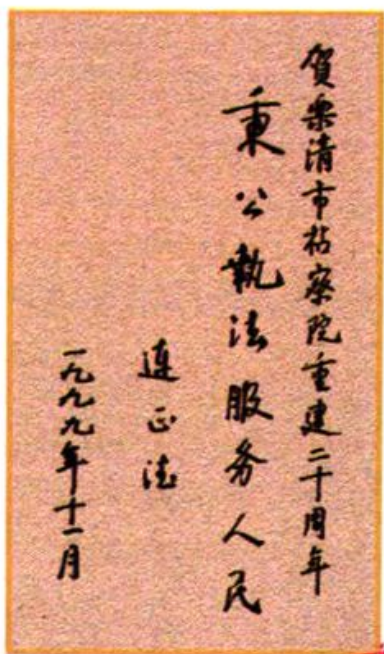 賀樂清市检察院重建二十周年
秉公執法服务人民
连正法
一九九九年十一月